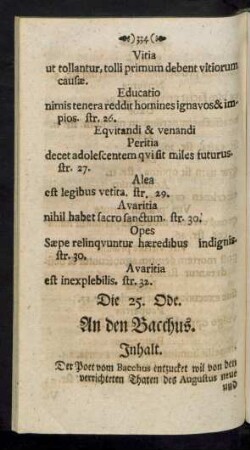 334
Vitia
ut tollantur, tolli primum debent vitiorum
causæ.
Educatio
nimis tenera reddit homines ignavos & im-
pios. str. 26.
Eqvitandi & venandi
Peritia
decet adolescentem qvi sit miles futurus.
str. 27.
Alea
est legibus vetita. str. 29.
Avaritia
nihil habet sacro sanctum. str. 30.
Opes
Sæpe relinqvuntur hæredibus indignis.
str. 30.
Avaritia
est inexplebilis. str. 32.
Die 25. Ode.
An den Bacchus.
Inhalt.
Der Poet vom Bacchus entzucket wil von den
verrichteten Thaten des Augustus neue
und